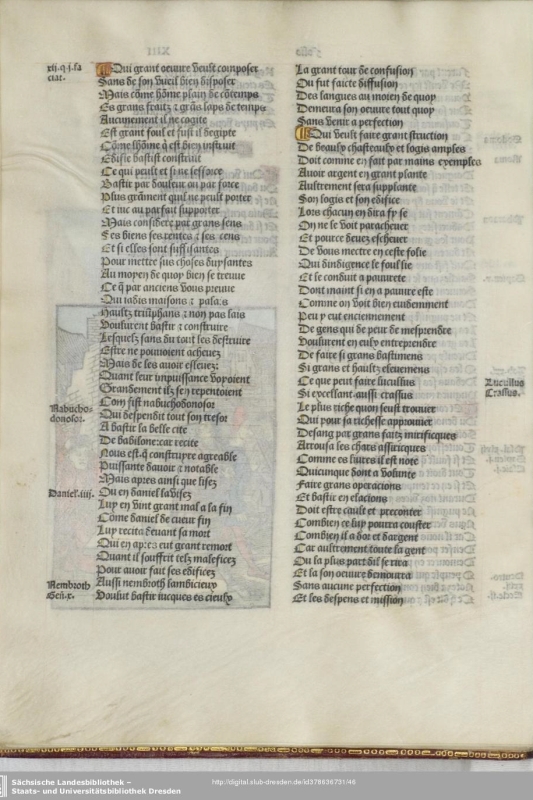 xij.q.j.sa
ciat.
Qui grant oeuvre veult composer
Sans de son vueil bien disposer
Mais cõme hõme plain de cõtemps
Es grans fraitz ⁊ grãs laps de temps
Aucunement il ne cogite
Est grant foul et fust il degipte
Cõme lhõme q̃ est bien instruit
Edifie bastist construit
Ce qui peult et si ne sefforce
Bastir par douleur ou par force
Plus grãment quil ne peult porter
Et ne au parfait supporter
Mais considere par grans sens
Ses biens ses rentes ⁊ ses cens
Et si elles sont suffisantes
Pour mettre sus choses duysantes
Au moyen de quoy bien se treuue
Ce q̃ par anciens vous preuue
Qui iadis maisons ⁊ palais
Haultz triũphans ⁊ non pas lais
Voulurent bastir ⁊ construire
Lesquelz sans du tout les destruire
Estre ne pouuoient acheuez
Mais de les auoir esleuez
Quant leur impuissance voyoient
Grandement ilz sen repentoient
Nabucho-
donosor.
Com fist nabuchodonosor
Qui despendit tout son tresor
A bastir la belle cite
De babilone: car recite
Nous est q̃ construyre agreable
Puissante dauoir ⁊ notable
Mais apres ainsi que lisez
Daniel.iiij.
Ou en daniel laduisez
Luy en vint grant mal a la fin
Cõme daniel de cueur fin
Luy recita deuant sa mort
Qui en apres eut grant remort
Quant il souffrit telz malefices
Pour auoir fait ses edifices
Nembroth
Geñ.x.
Aussi nembroth lambicieux
Voulut bastir iucques es cieulx
La grant tour de confusion
Ou fut faicte diffusion
Des langues au moien de quoy
Demeura son oeuure tout quoy
Sans venir a perfection
Qui veult faire grant struction
De beaulx chasteaulx et logis amples
Doit comme en fait par mains exemples
Auoir argent en grant plante
Aultrement sera supplante
Son logis et son edifice
Lors chacun en dira fy se
On ne le voit paracheuer
Et pource deuez escheuer
De vous mectre en ceste folie
Qui dindigence le foul lie
Et le conduit a pauurete
Dont maint si en a pauure este
Comme on voit bien euidemment
Peu y eut enciennement
De gens qui de peur de mesprendre
Voulsirent en eulx entreprendre
De faire si grans bastimens
Si grans et haultz eleuemens
Lucullus
Crassus.
Ce que peut faire lucullus
Si excellant aussi crassus
Le plus riche quon seust trouuer
Qui pour sa richesse approuuer
De sang par grans faitz mirifiques
Arrousa les chars assiriques
Comme es liures il est note
Quicunque dont a volunte
Faire grans operacions
Et bastir en elacions
Doit estre cault et preconter
Combien ce luy pourra couster
Combien il a dor et dargent
Car aultrement toute la gent
Ou la plus part dil se rira
Et la son oeuure demourra
Sans aucune perfection
Et les despens et mission
Sächsische Landesbibliothek –
Staats- und Universitätsbibliothek Dresden
http://digital.slub-dresden.de/id378636731/46